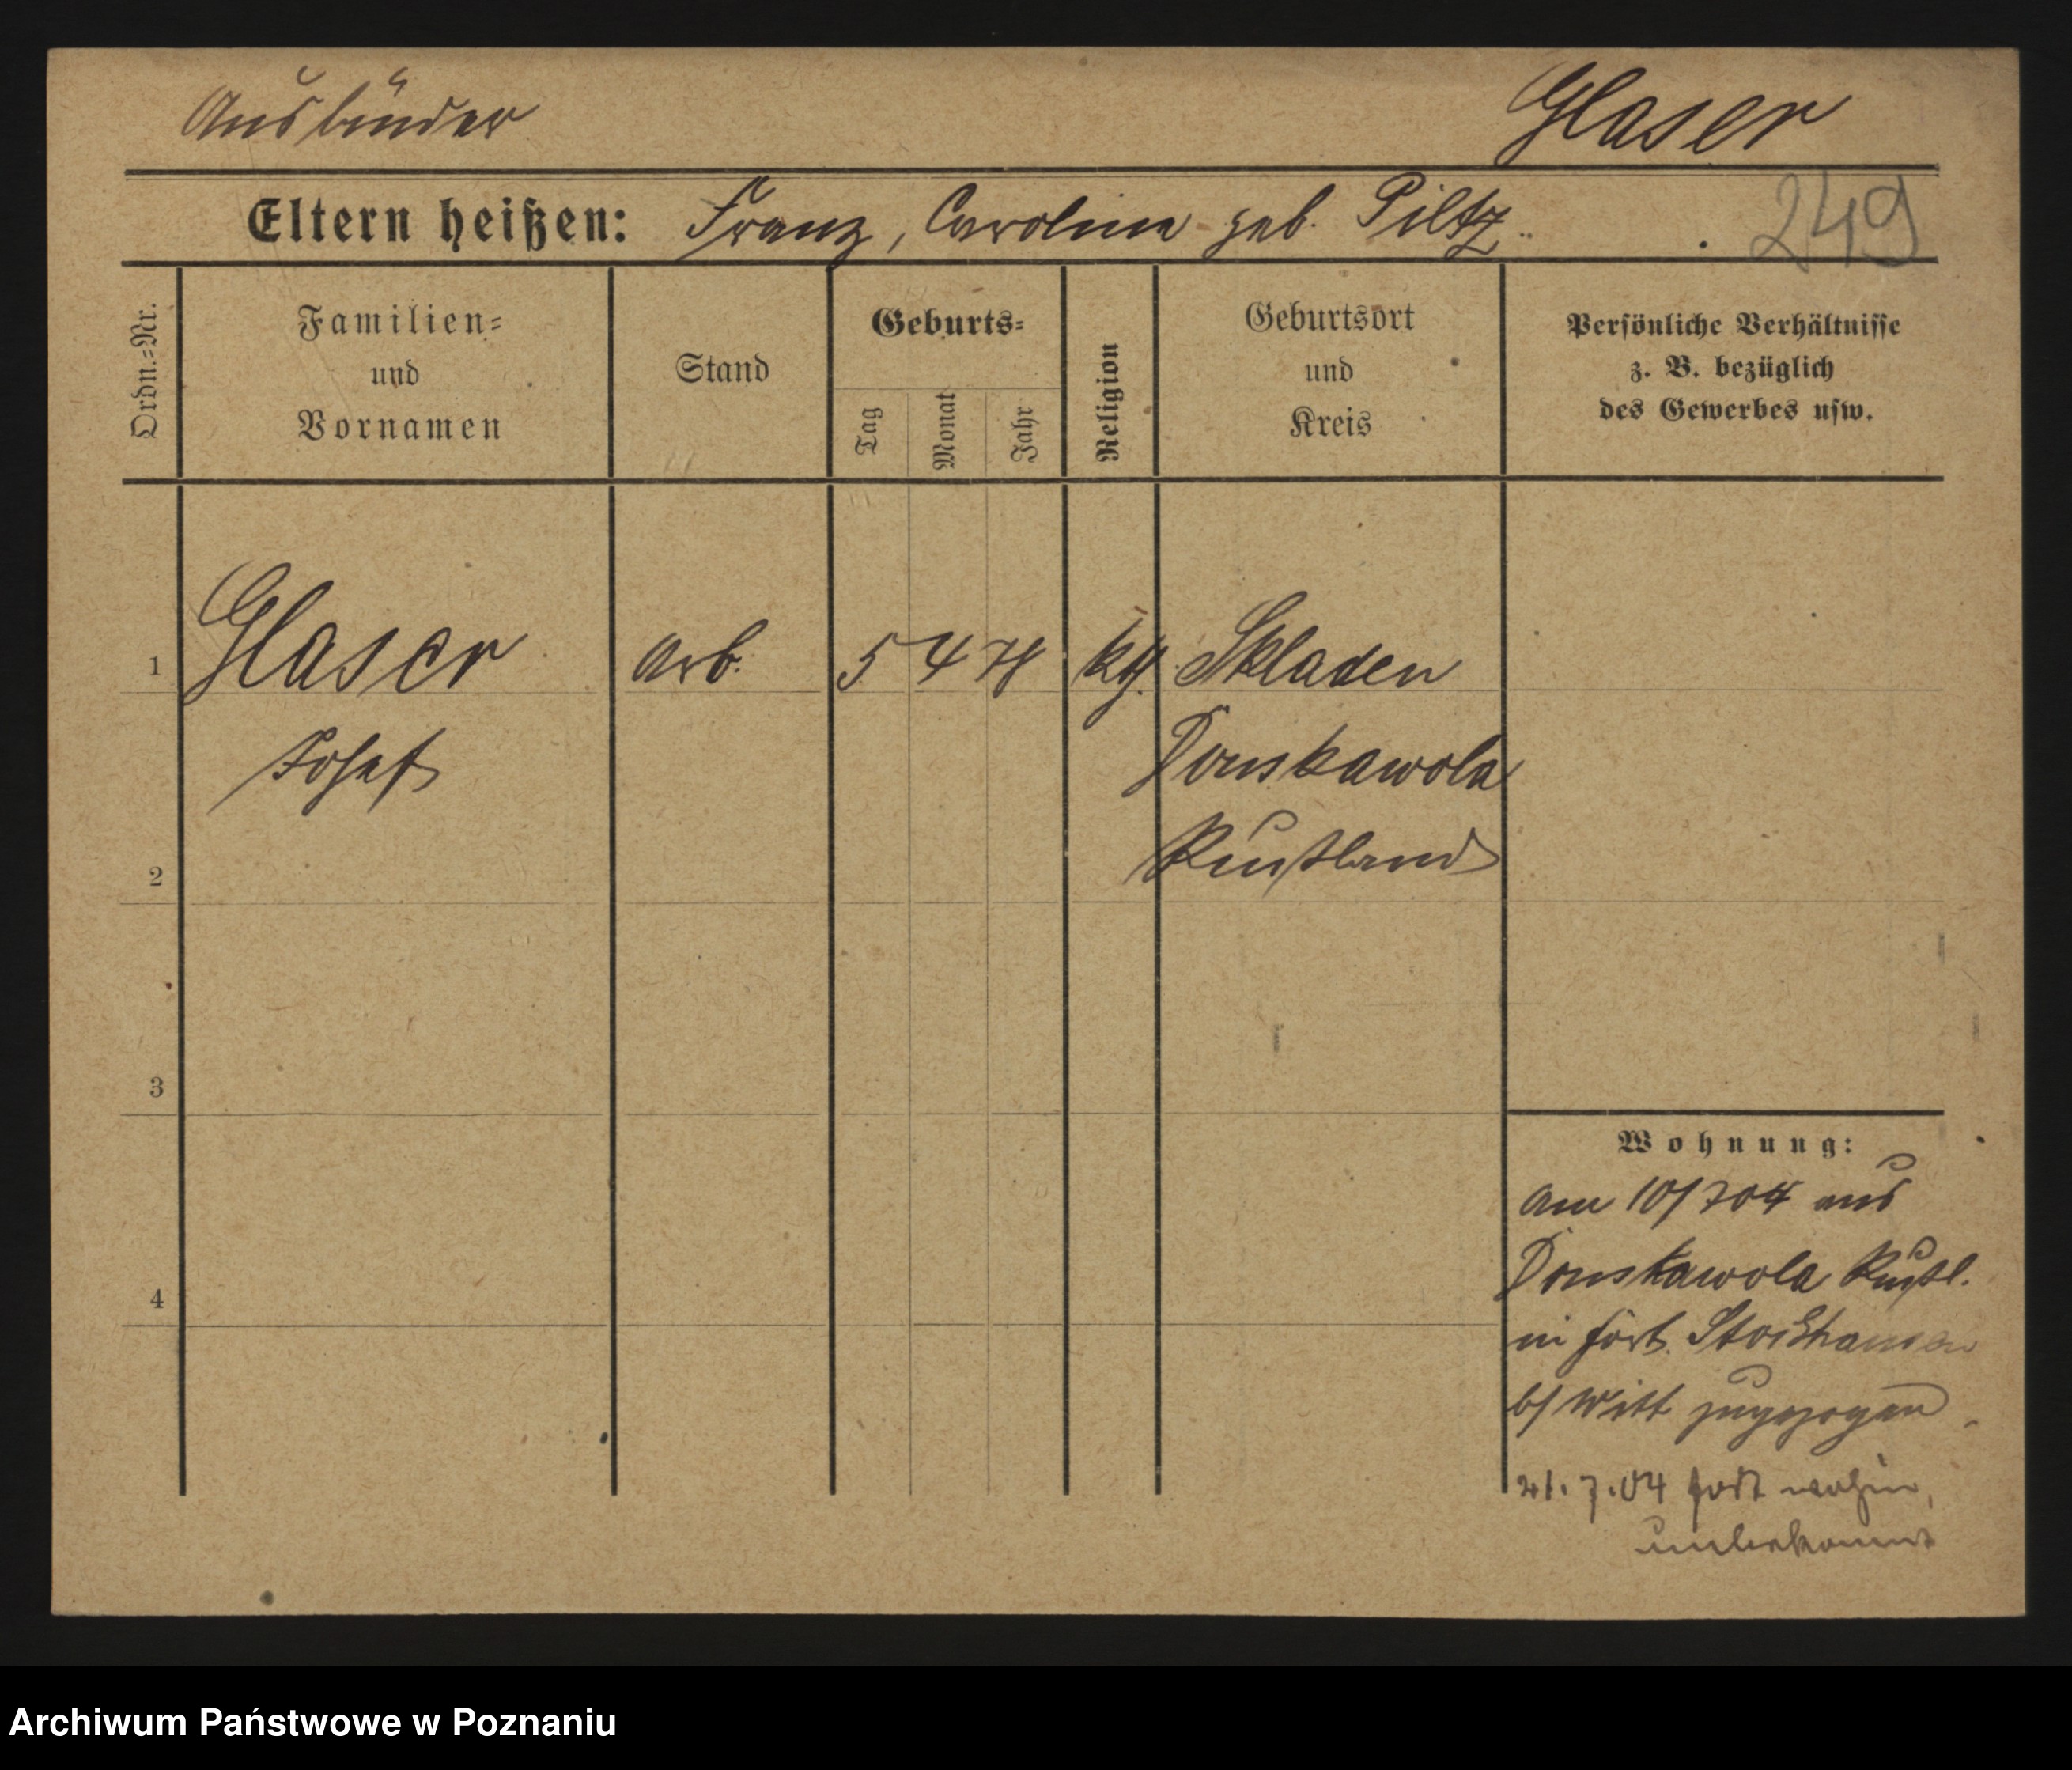 Ausländer
Glaser
Eltern heißen: Franz, Carolina geb. Piltz
249
Ordn.=Nr.
Familien=
und
Vornamen
Stand
Geburts=
Tag
Monat
Jahr
Religion
Geburtsort
und
Kreis
Persönliche Verhältnisse
z. B. bezüglich
des Gewerbes usw.
1 Glaser Arb. 5 4 78 kth. Skladen
Josef Donskawola
Rußland
2
3
4
Wohnung:
am 10/7 04 aus
Donskawola Rußl.
in
b/ Witt zugezogen
21.7.04 fort wohin,
unbekannt
Archiwum Państwowe w Poznaniu